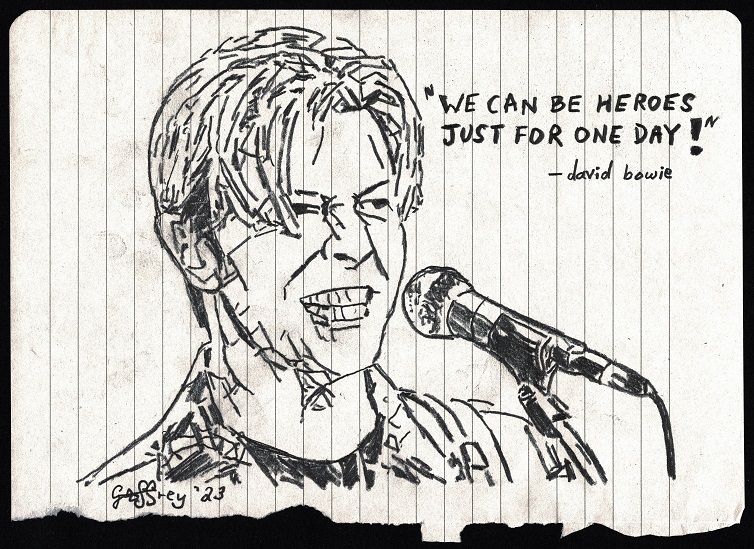 "WE CAN BE HEROES
JUST FOR ONE DAY!"
- david bowie
geffrey '23